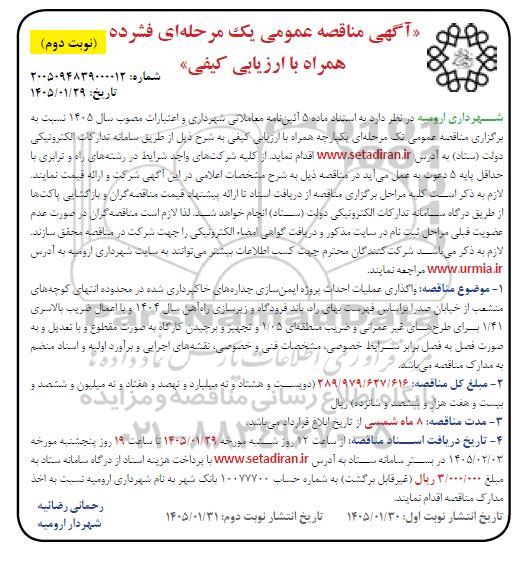 «آگهی مناقصه عمومی یک مرحله‌ای فشرده
همراه با ارزیابی کیفی»
(نوبت دوم)
شماره: ۲۰۰۵۰۹۴۸۳۹۰۰۰۰۱۲
تاریخ: ۱۴۰۵/۰۱/۲۹
شهرداری ارومیه در نظر دارد به استناد ماده ۵ آئین‌نامه معاملاتی شهرداری و اعتبارات مصوب سال ۱۴۰۵ نسبت به
برگزاری مناقصه عمومی تک مرحله‌ای یکپارچه همراه با ارزیابی کیفی به شرح ذیل از طریق سامانه تدارکات الکترونیکی
دولت (ستاد) به آدرس www.setadiran.ir اقدام نماید. از کلیه شرکت‌های واجد شرایط در رشته‌های راه و ترابری با
حداقل پایه ۵ دعوت به عمل می‌آید در مناقصه ذیل به شرح مشخصات اعلامی در این آگهی شرکت و ارائه قیمت نمایند.
لازم به ذکر است کلیه مراحل برگزاری مناقصه از دریافت اسناد تا ارائه پیشنهاد قیمت مناقصه‌گران و بازگشایی پاکت‌ها
از طریق درگاه سامانه تدارکات الکترونیکی دولت (ستاد) انجام خواهد شد. لذا لازم است مناقصه‌گران در صورت عدم
عضویت قبلی مراحل ثبت نام در سایت مذکور و دریافت گواهی امضاء الکترونیکی را جهت شرکت در مناقصه محقق سازند.
لازم به ذکر می‌باشد شرکت‌کنندگان محترم جهت کسب اطلاعات بیشتر می‌توانند به سایت شهرداری ارومیه به آدرس
www.urmia.ir مراجعه نمایند.
۱- موضوع مناقصه: واگذاری عملیات احداث پروژه ایمن‌سازی جداره‌های خاکبرداری شده در محدوده انتهای کوچه‌های
منشعب از خیابان صدرا براساس فهرست بهای راه، باند فرودگاه و زیرسازی راه‌آهن سال ۱۴۰۴ و با اعمال ضریب بالاسری
۱/۴۱ برای طرح‌های غیر عمرانی و ضریب منطقه‌ای ۱/۰۵ و تجهیز و برچیدن کارگاه به صورت مقطوع و با تعدیل و به
صورت فصل به فصل برابر شرایط خصوصی، مشخصات فنی و خصوصی، نقشه‌های اجرایی و برآورد اولیه و اسناد منضم
به مدارک مناقصه می‌باشد.
۲- مبلغ کل مناقصه: ۲۸۹/۹۷۹/۶۲۷/۶۱۶ (دویست و هشتاد و نه میلیارد و نهصد و هفتاد و نه میلیون و ششصد و
بیست و هفت هزار و ششصد و شانزده) ریال
۳- مدت مناقصه: ۸ ماه شمسی از تاریخ ابلاغ قرارداد می‌باشد.
۴- تاریخ دریافت اسناد مناقصه: از ساعت ۱۲ روز شنبه مورخه ۱۴۰۵/۰۱/۲۹ تا ساعت ۱۹ روز پنجشنبه مورخه
۱۴۰۵/۰۲/۰۳ در بستر سامانه ستاد به آدرس www.setadiran.ir با پرداخت هزینه اسناد از درگاه سامانه ستاد به
مبلغ ۳/۰۰۰/۰۰۰ ریال (غیرقابل برگشت) به شماره حساب ۱۰۰۷۷۷۰۰ بانک شهر به نام شهرداری ارومیه نسبت به اخذ
مدارک مناقصه اقدام نمایند.
تاریخ انتشار نوبت اول: ۱۴۰۵/۰۱/۳۰ تاریخ انتشار نوبت دوم: ۱۴۰۵/۰۱/۳۱
رحمانی رضائیه
شهردار ارومیه